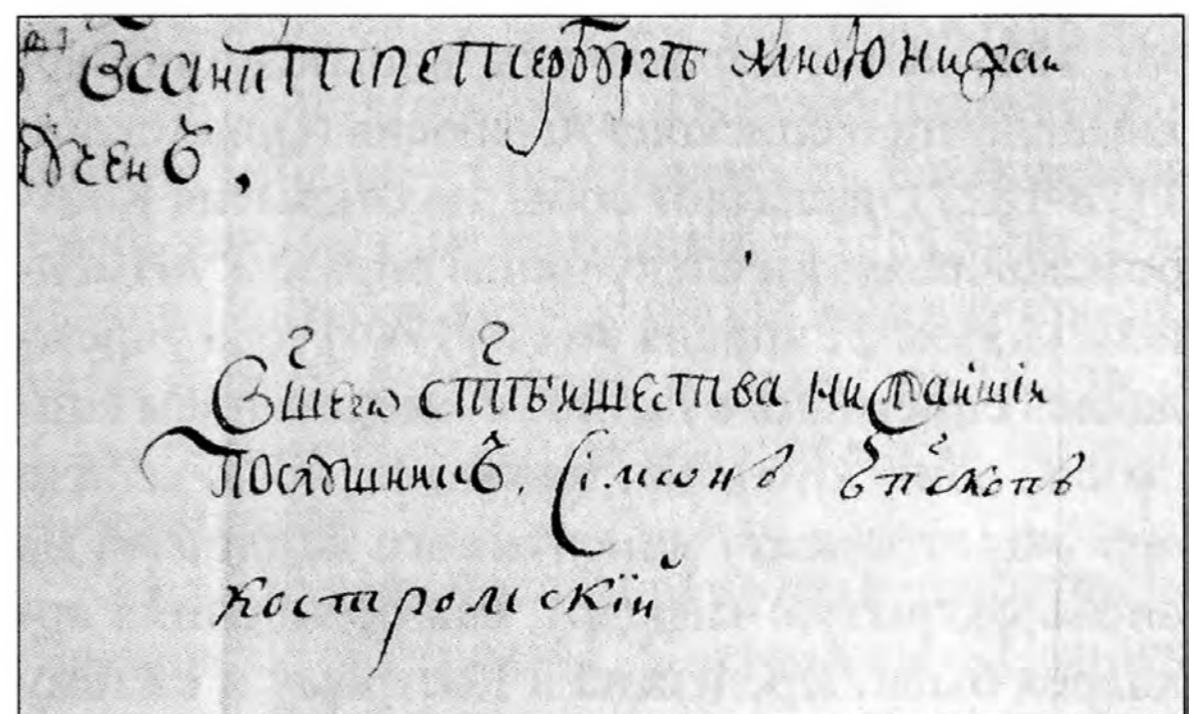 Всанктпетербургѣ мною нижаи
Вшегѡ стѣишества нижайшіи
послꙋшникъ. Сімонъ Епископъ
костромскїй